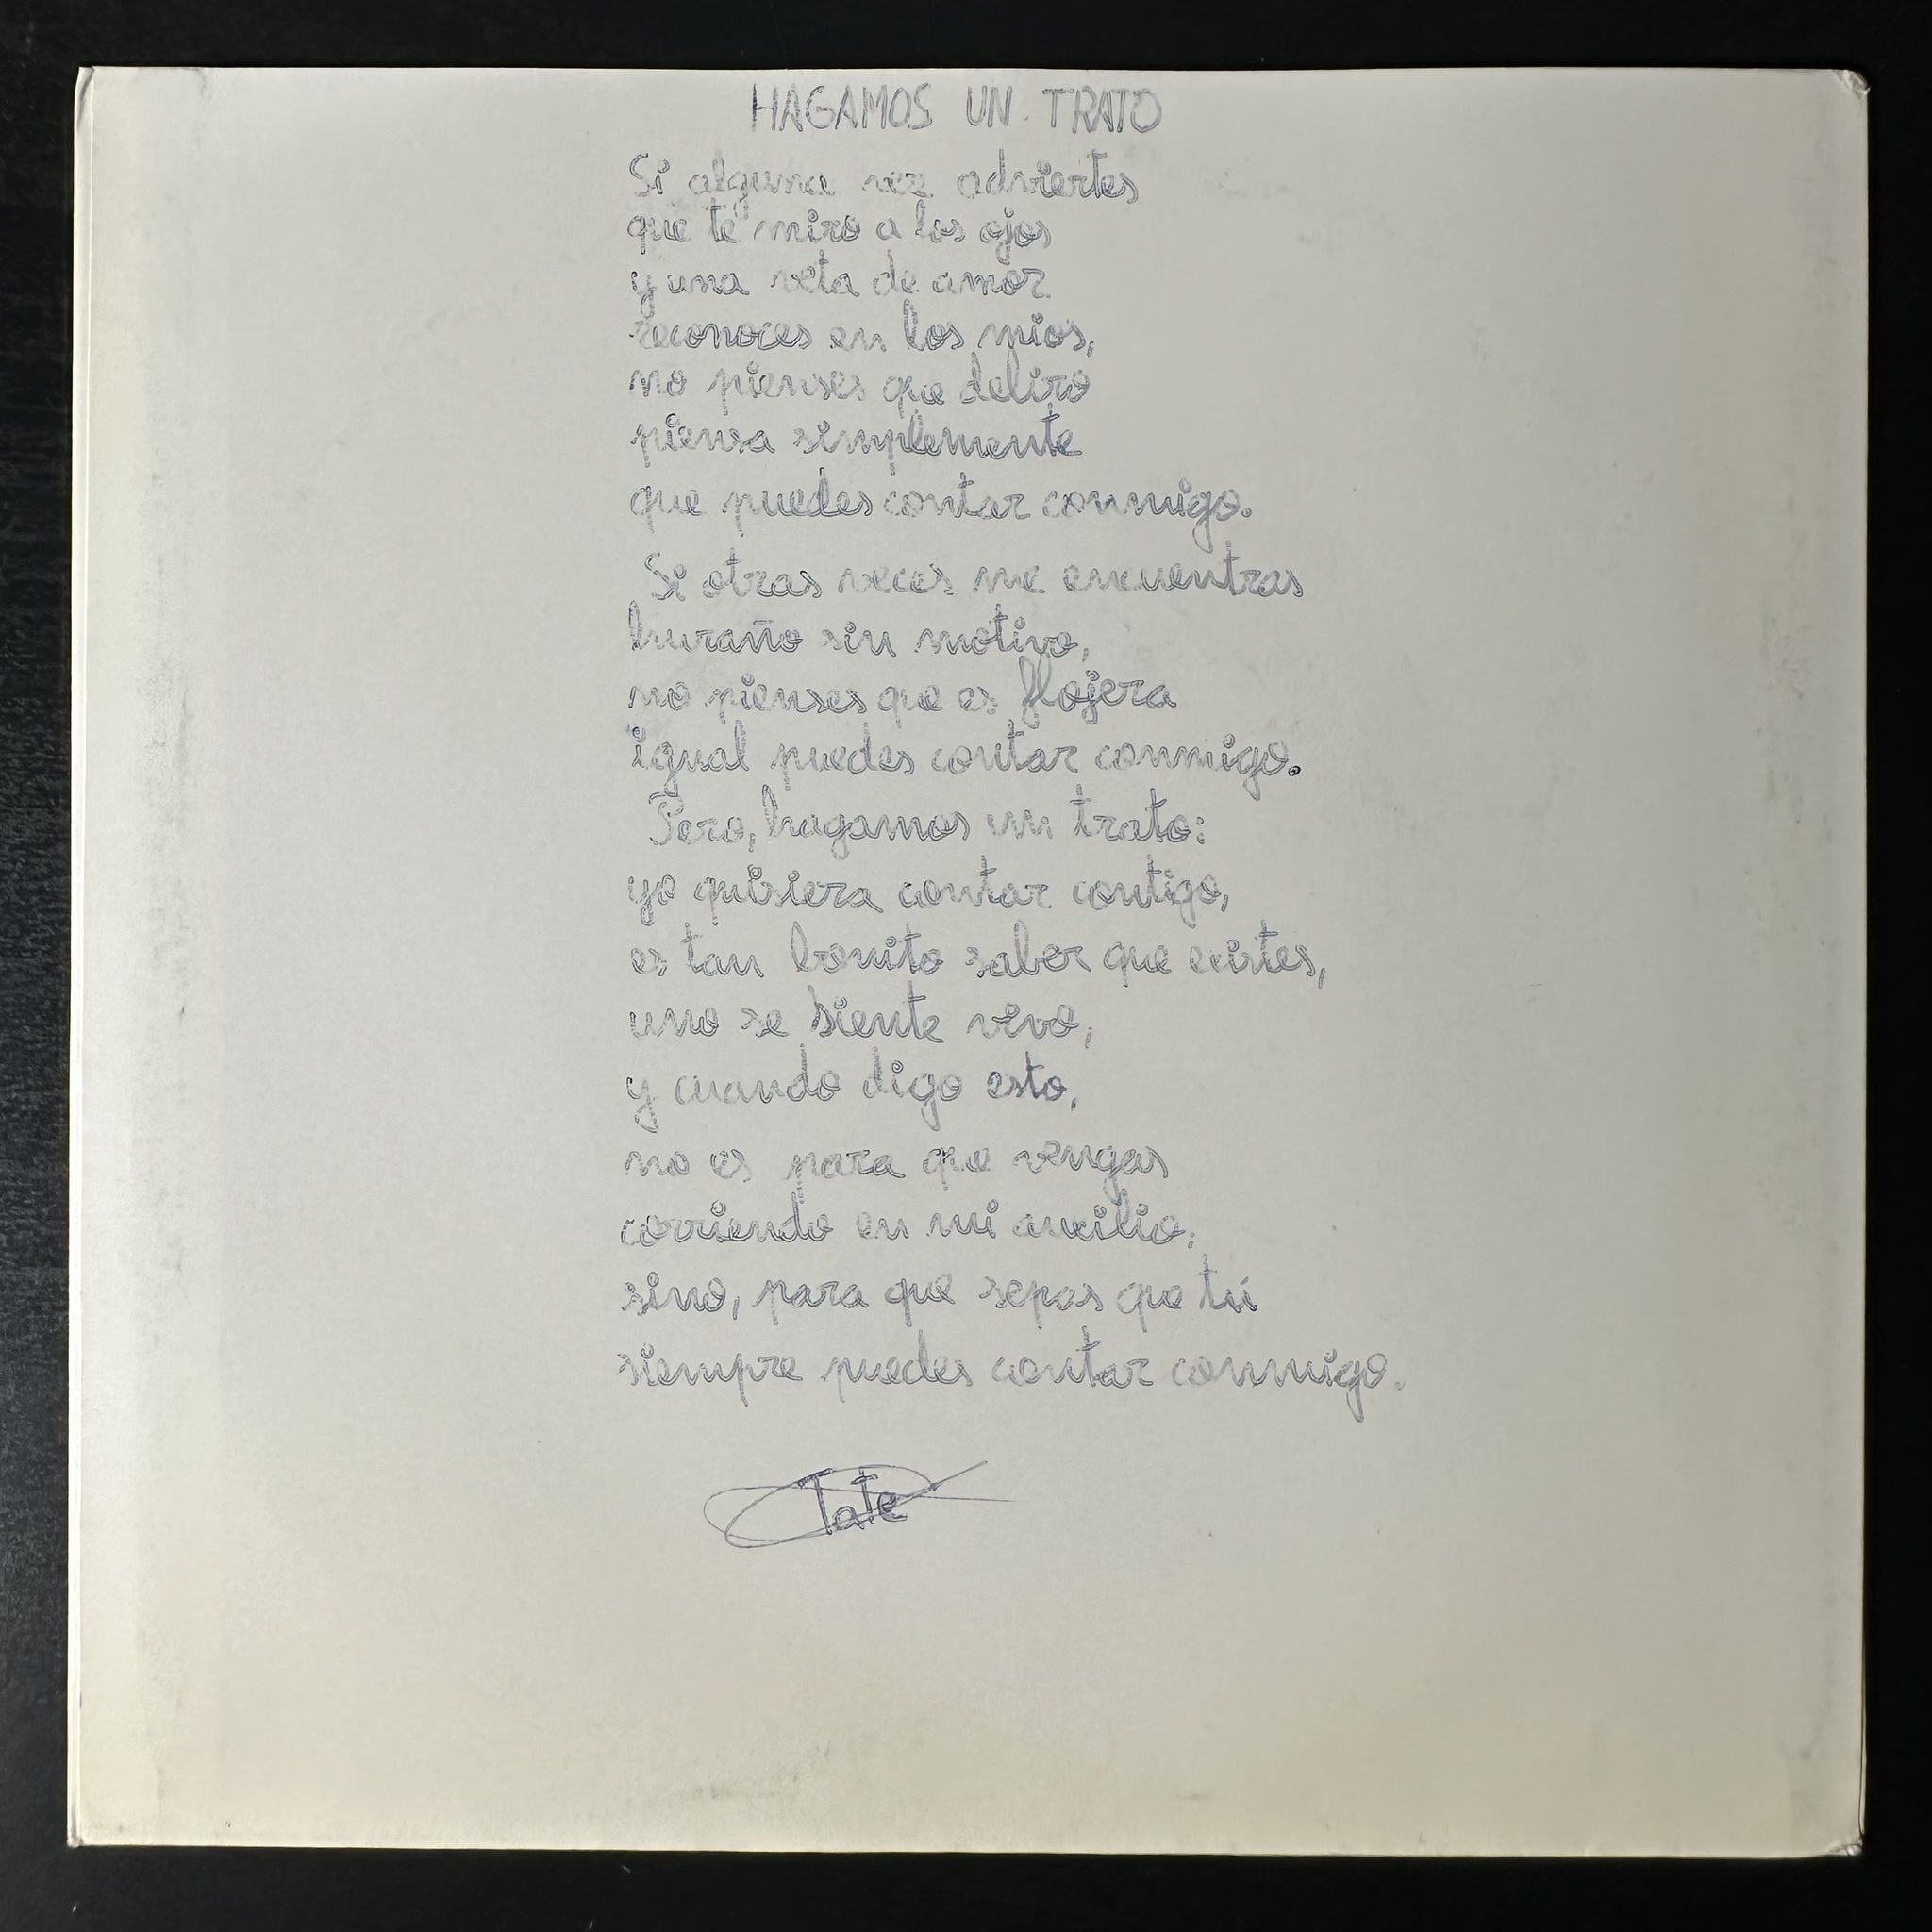 HAGAMOS UN TRATO
Si alguna vez adviertes
que te miro a los ojos
y una veta de amor
reconoces en los mios,
no pienses que deliro
piensa simplemente
que puedes contar conmigo.
Si otras veces me encuentras
huraño sin motivo,
no pienses que es flojera
igual puedes contar conmigo.
Pero, hagamos un trato:
yo quisiera contar contigo,
es tan bonito saber que existes,
uno se siente vivo,
y cuando digo esto,
no es para que vengas
corriendo en mi auxilio;
sino, para que sepas que tú
siempre puedes contar conmigo.
Tate